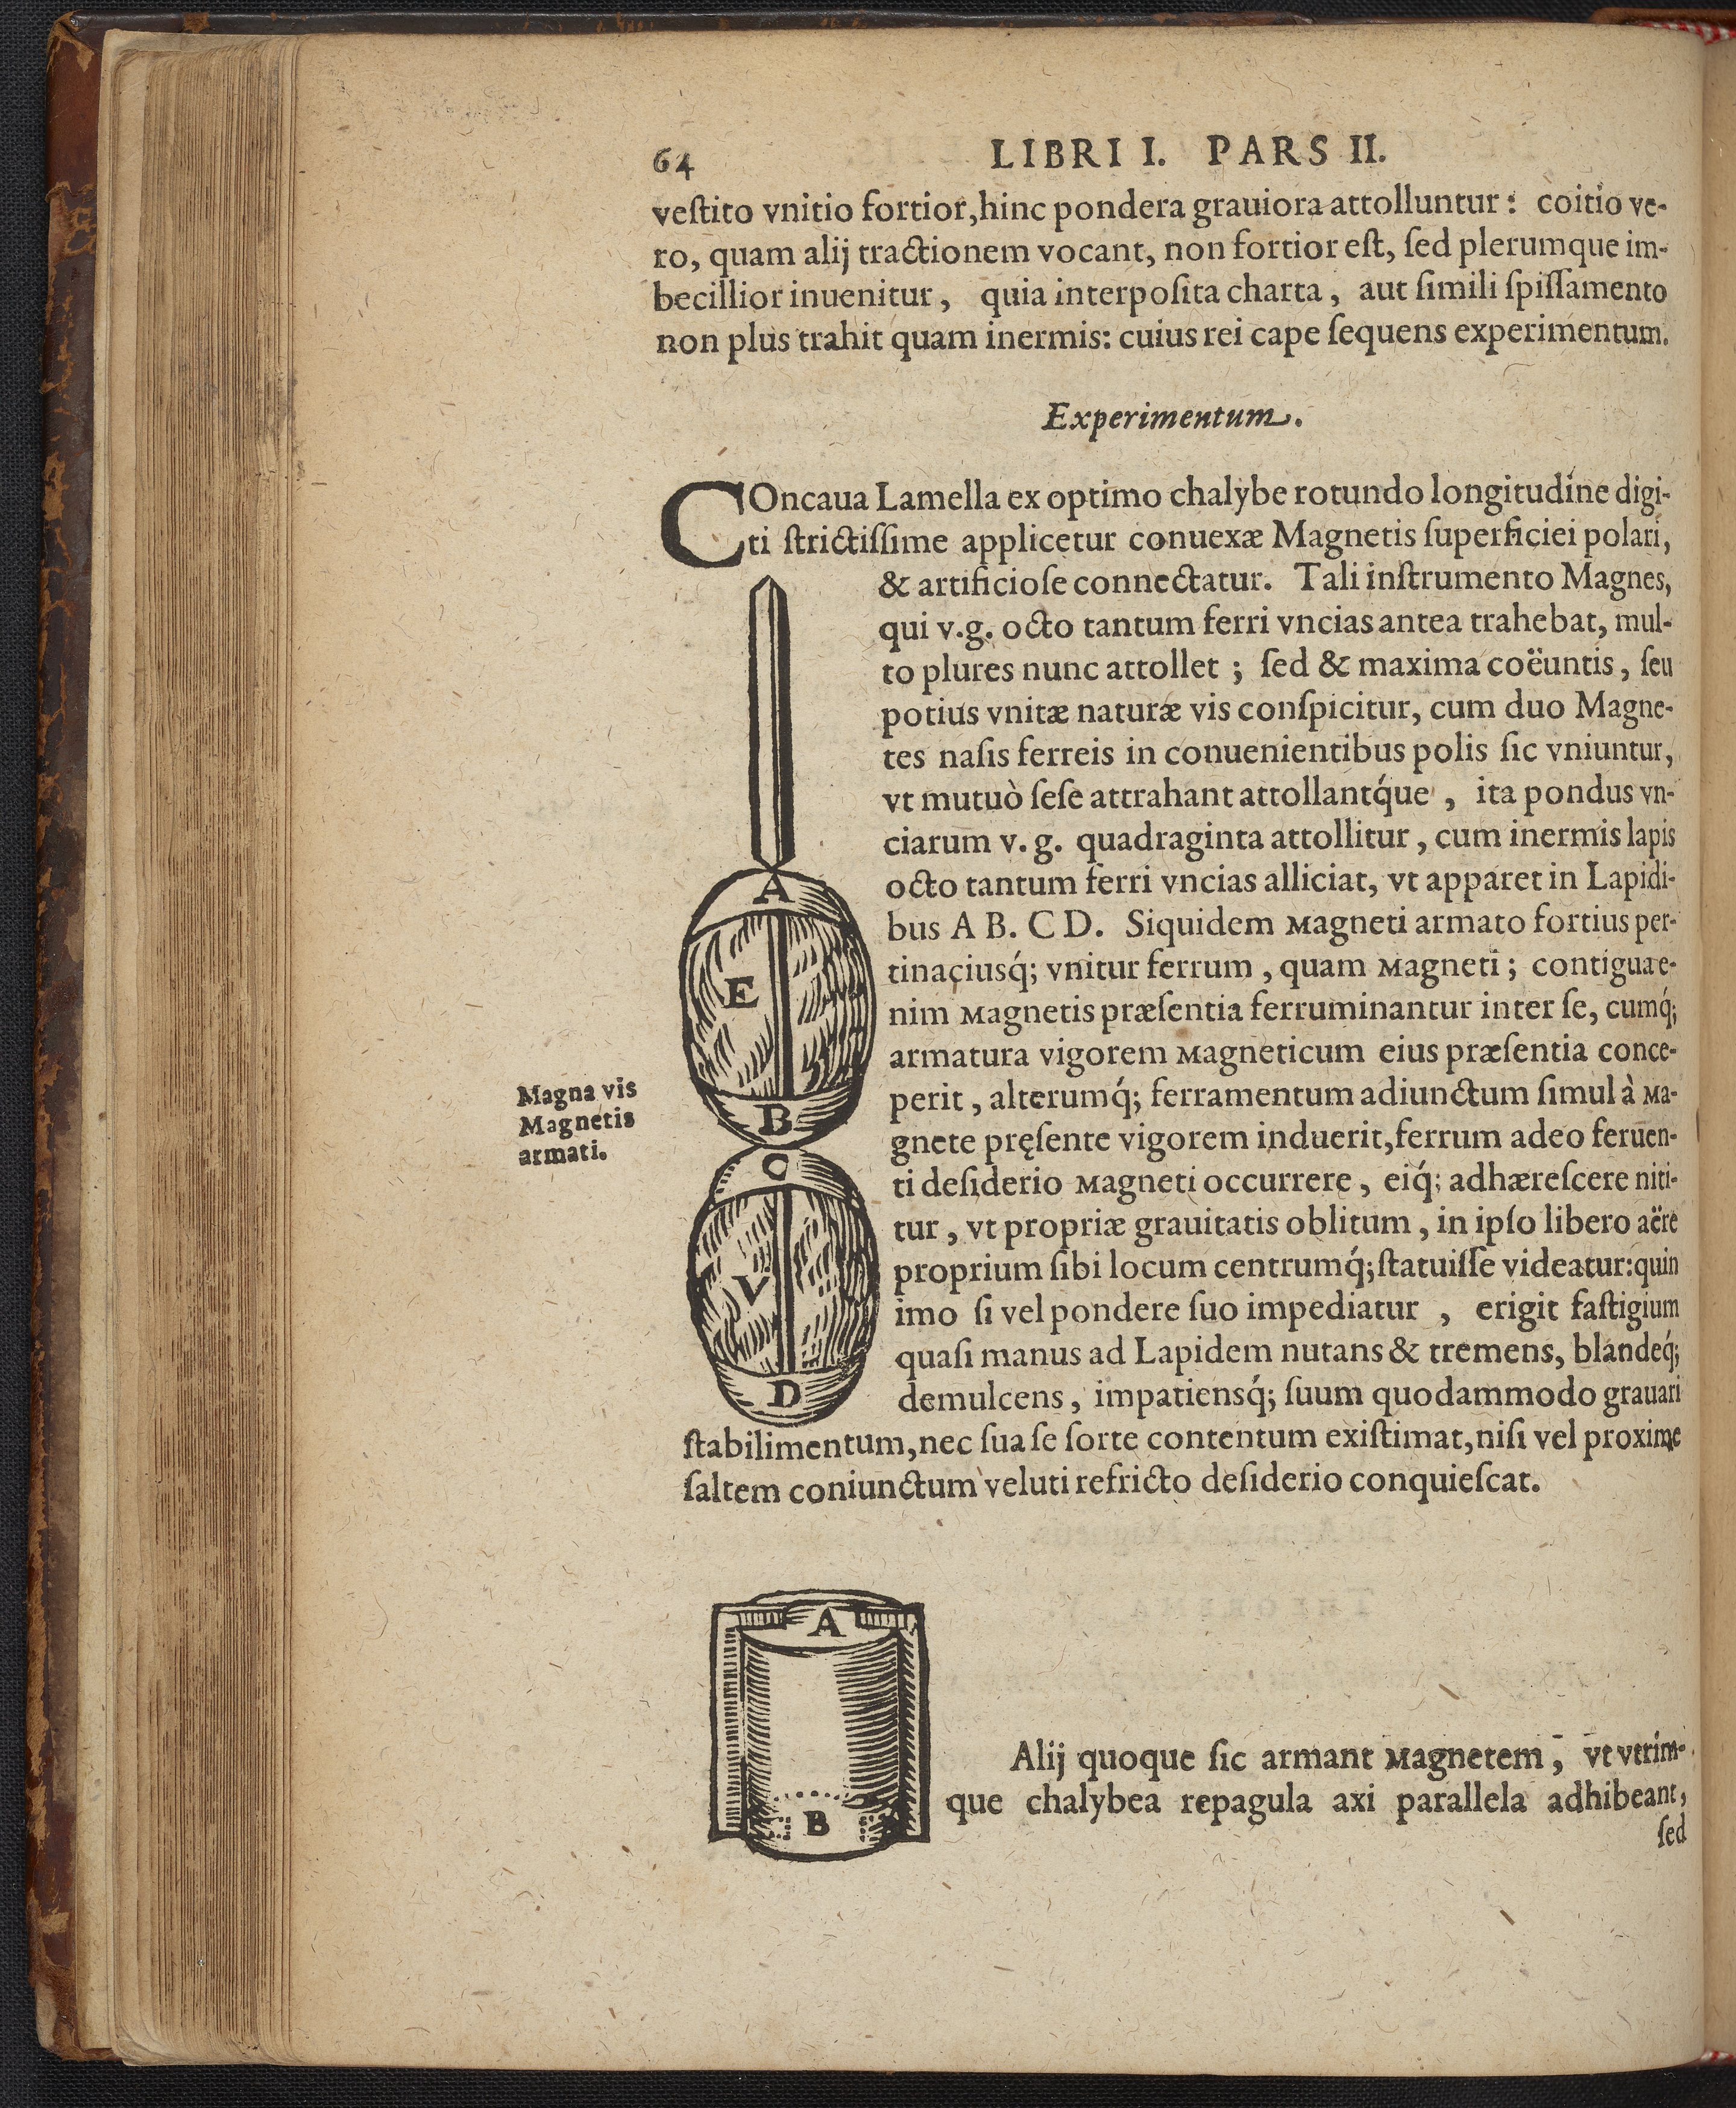 64 LIBRI I. PARS II.
veſtito vnitio fortior,hinc pondera grauiora attolluntur: coitio ve-
ro, quam alij tractionem vocant, non fortior eſt, ſed plerumque im-
becillior inuenitur, quia interpoſita charta, aut ſimili ſpiſſamento
non plus trahit quam inermis: cuius rei cape ſequens experimentum.
Experimentum.
COncaua Lamella ex optimo chalybe rotundo longitudine digi-
ti ſtrictiſſime applicetur conuexæ Magnetis ſuperficiei polari,
& artificioſe connectatur. Tali inſtrumento Magnes,
qui v.g. octo tantum ferri vncias antea trahebat, mul-
to plures nunc attollet ; ſed & maxima coëuntis, ſeu
potius vnitæ naturæ vis conſpicitur, cum duo Magne-
tes naſis ferreis in conuenientibus polis ſic vniuntur,
vt mutuò ſeſe attrahant attollantq́ue, ita pondus vn-
ciarum v. g. quadraginta attollitur, cum inermis lapis
octo tantum ferri vncias alliciat, vt apparet in Lapidi-
bus A B. C D. Siquidem Magneti armato fortius per-
tinaciusq́; vnitur ferrum, quam Magneti; contigua e-
nim Magnetis præſentia ferruminantur inter ſe, cumq́;
armatura vigorem Magneticum eius præſentia conce-
perit, alterumq́; ferramentum adiunctum ſimul à Ma-
gnete pręſente vigorem induerit,ferrum adeo feruen-
ti deſiderio Magneti occurrere, eiq́; adhæreſcere niti-
tur, vt propriæ grauitatis oblitum, in ipſo libero aëre
proprium ſibi locum centrumq́;ſtatuiſſe videatur:quin
imo ſi vel pondere ſuo impediatur, erigit faſtigium
quaſi manus ad Lapidem nutans & tremens, blandeq́;
demulcens, impatiensq́; ſuum quodammodo grauari
ſtabilimentum,nec ſua ſe ſorte contentum exiſtimat,niſi vel proxime
ſaltem coniunctum veluti refricto deſiderio conquieſcat.
Magna vis
Magnetis
armati.
A
E
B
C
V
D
A
B
Alij quoque ſic armant Magnetem, vt vtrim-
que chalybea repagula axi parallela adhibeant,
ſed